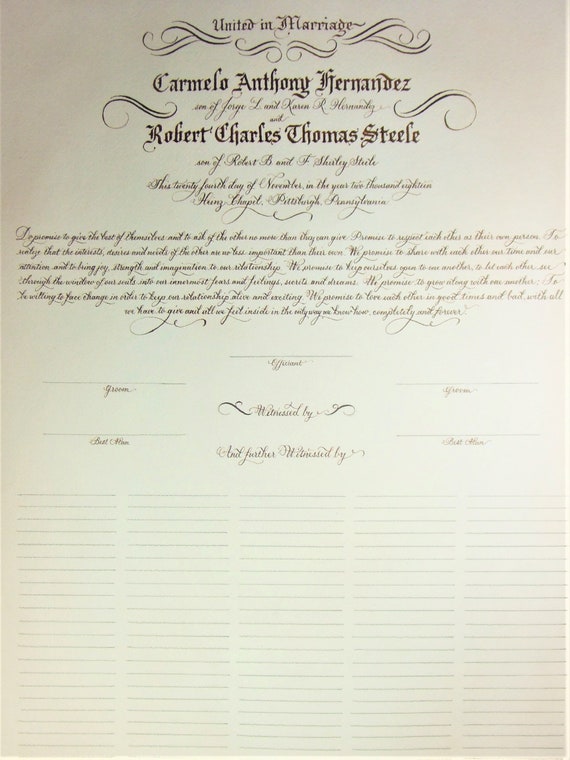 United in Marriage
Carmelo Anthony Hernandez
son of Jorge L. and Karen R. Hernandez
and
Robert Charles Thomas Steele
son of Robert B. and F. Shirley Steele
This twenty fourth day of November, in the year two thousand eighteen
Heinz Chapel, Pittsburgh, Pennsylvania
Do promise to give the best of themselves and to ask of the other no more than they can give. Promise to respect each other as their own person. To
realize that the interests, desires and needs of the other are no less important than their own. We promise to share with each other our time and our
attention and to bring joy, strength and imagination to our relationship. We promise to keep ourselves open to one another, to let each other see
through the window of our souls into our innermost fears and feelings, secrets and dreams. We promise to grow along with one another; To
be willing to face change in order to keep our relationship alive and exciting. We promise to love each other in good times and bad, with all
we have to give and all we feel inside in the only way we know how, completely and forever.
Officiant
Groom Groom
Witnessed by
Best Man Best Man
And further Witnessed by